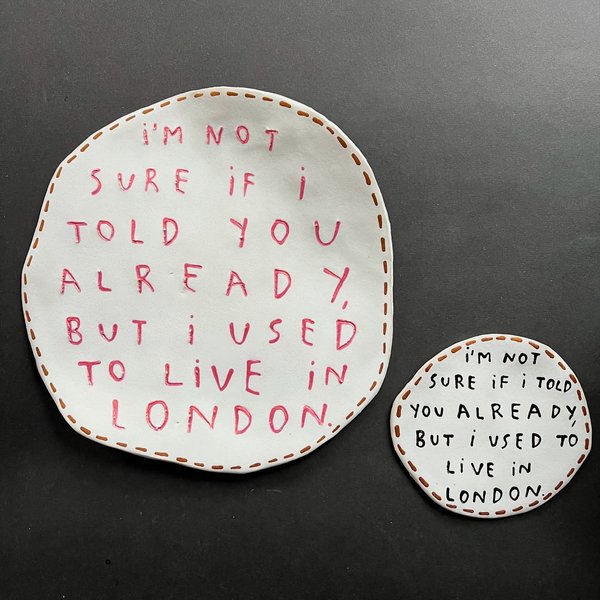 i'M NOT
SURE iF i
TOLD YOU
ALREADY,
BUT i USED
TO LiVE iN
LONDON.
i'M NOT
SURE iF i TOLD
YOU ALREADY,
BUT i USED TO
LiVE iN
LONDON.